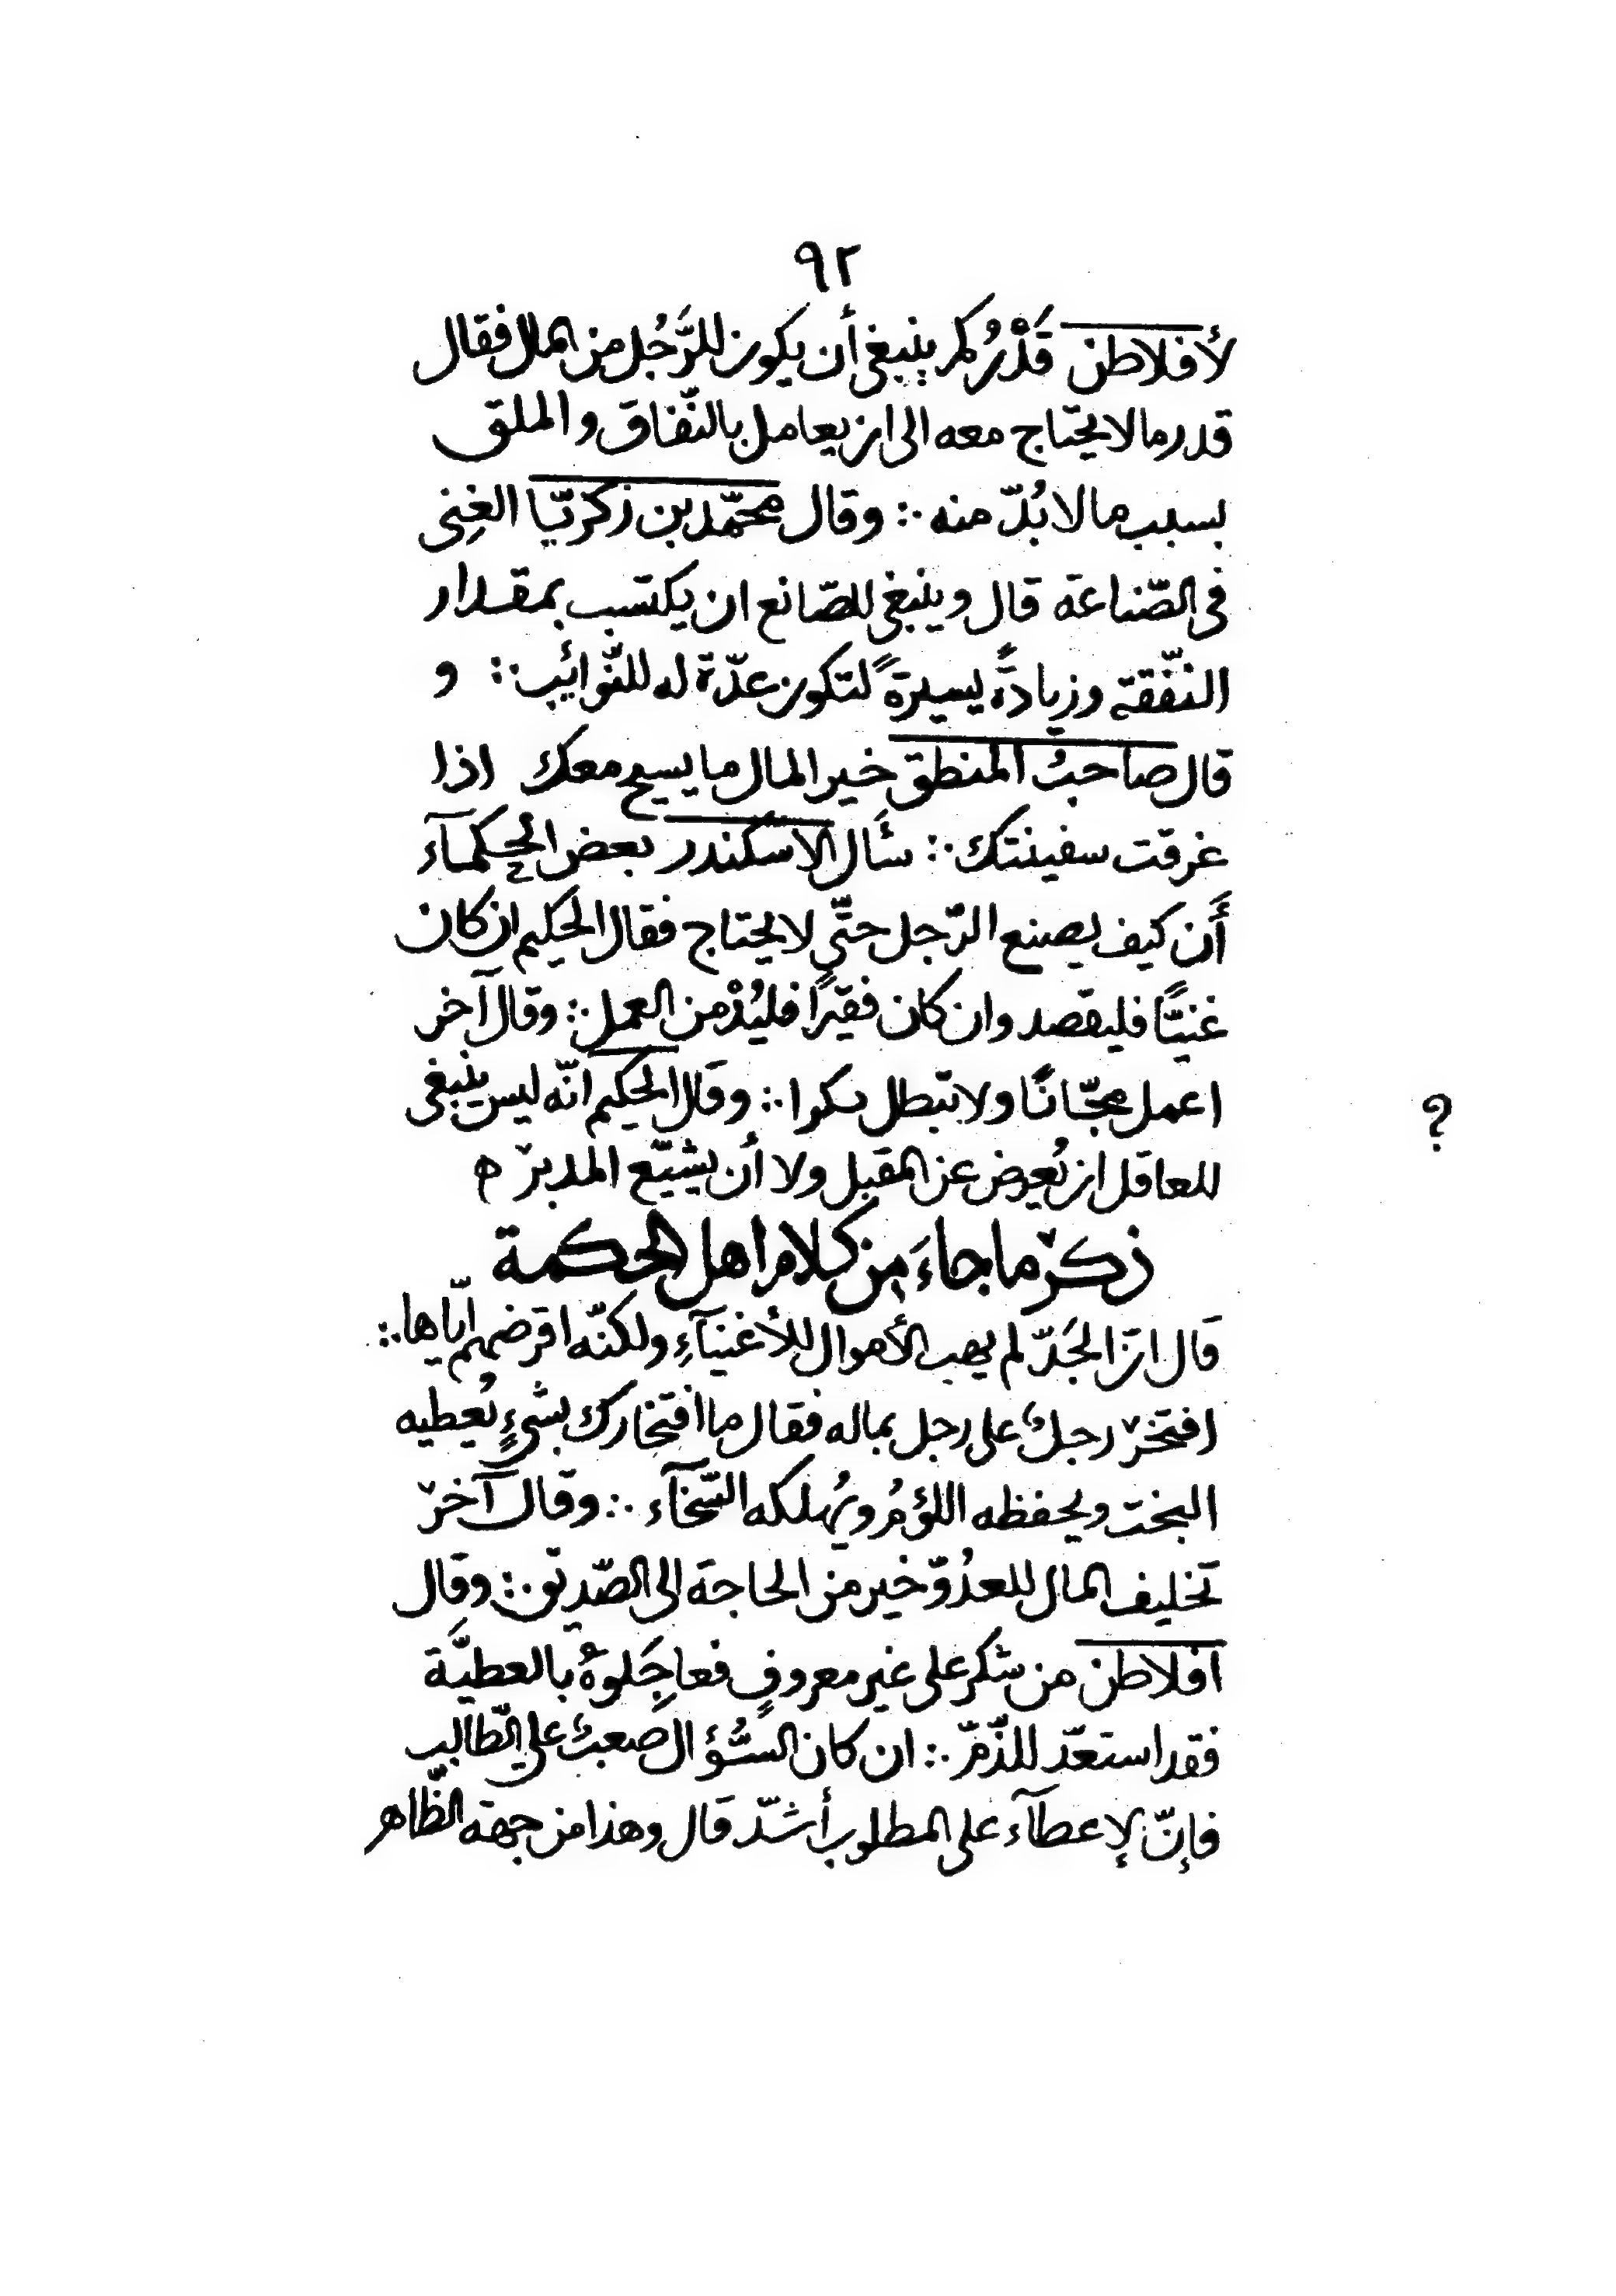 ٩٢
لأفلاطن قَدْرُ كم ينبغى أن يكون للرَّجُل من المال فقال
قدر ما لا يحتاج معه الى ان يعامل بالنّفاق والملق
بسبب ما لا بُدّ منه ∴ وقال محمّد بن زكريّا الغِنى
فى الصّناعة قال وينبغى للصّانع ان يكتسب بمقدار
النّفقة وزيادةً يسيرةً لتكون عدّة له للنّوائب ∴ و
قال صاحبُ المنطق خير المال ما يسبح معك اذا
غرقت سفينتك ∴ سَأل الاسكندر بعض الحكمآء
أَن كيف يصنع الرّجل حتّى لا يحتاج فقال الحكيم ان كان
غنيًّا فليقصد وان كان فقيرًا فليُدْمن العمل ∴ وقال آخر
اعمل مجّانًا ولا تبطل ∴ وقال الحكيم انّه ليس ينبغى
للعاقل ان يُعرض عن المقبل ولا أن يشيّع المدبر ه
ذكر ما جاءَ من كلام اهل الحكمة
قال انّ الجَدّ لم يهب الأموال للأغنيآءِ ولكنّه اقرضهم ايّاها ∴
افتخر رجلٌ على رجل بماله فقال ما افتخارك بشىءٍ يُعطيه
البخت ويحفظه اللؤمُ ويُهلكه السّخآء ∴ وقال آخر
تخليف المال للعدُوّ خير من الحاجة الى الصّديق ∴ وقال
افلاطن من شكر على غير معروفٍ فعاجِلوهُ بالعطيَّة
فقد استعدّ للذّمّ ∴ ان كان السّؤال صعبٌ على الطّالب
فإنّ الإعطآء على المطلوب أشدّ قال وهذا من جهة الظّاهر
?